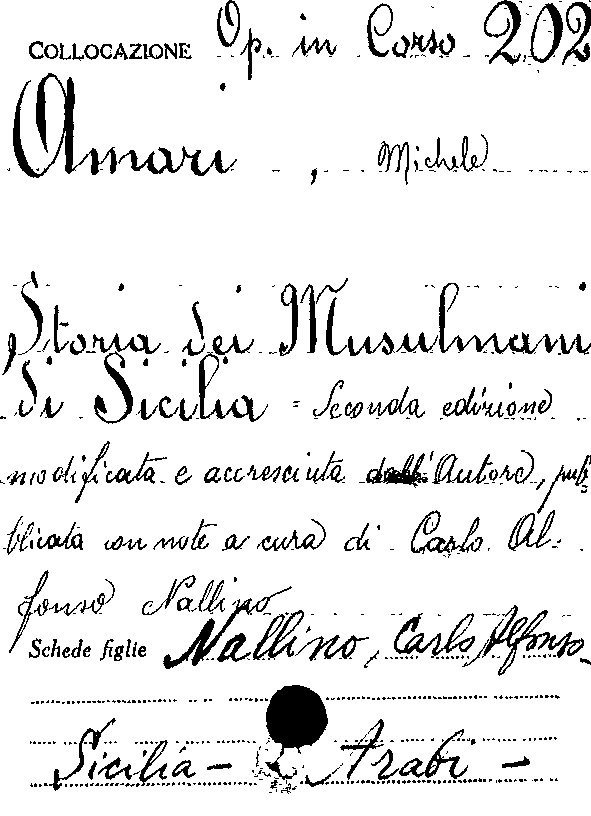 COLLOCAZIONE Op. in Corso 202
Amari, Michele
Storia dei Musulmani
di Sicilia = Seconda edizione
modificata e accresciuta dall'Autore, pub-
blicata con note a cura di Carlo Al-
fonso Nallino
Schede figlie Nallino, Carlo Alfonso
Sicilia - Arabi -